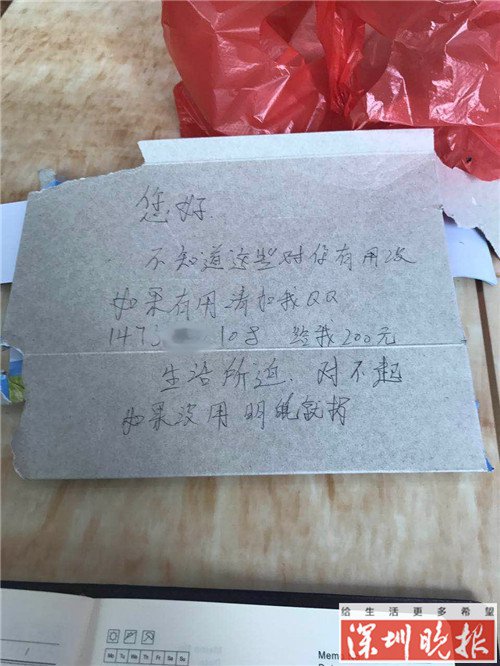 您好.
不知道这些对你有用没
如果有用请加我QQ
1473 108 给我200元
生活所迫.对不起
如果没用 明晚就扔
给生活更多希望
深圳晚报
Mem
Mo Tu We Th Fr Sa Su